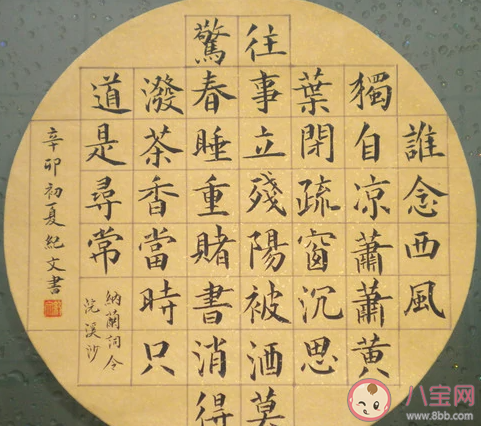 誰念西風
獨自凉蕭蕭黃
葉閉疏窗沉思
往事立殘陽被酒莫
驚春睡重賭書消得
潑茶香當時只
道是尋常
納蘭詞令
浣溪沙
辛卯初夏紀文書
八宝网
www.8bb.com